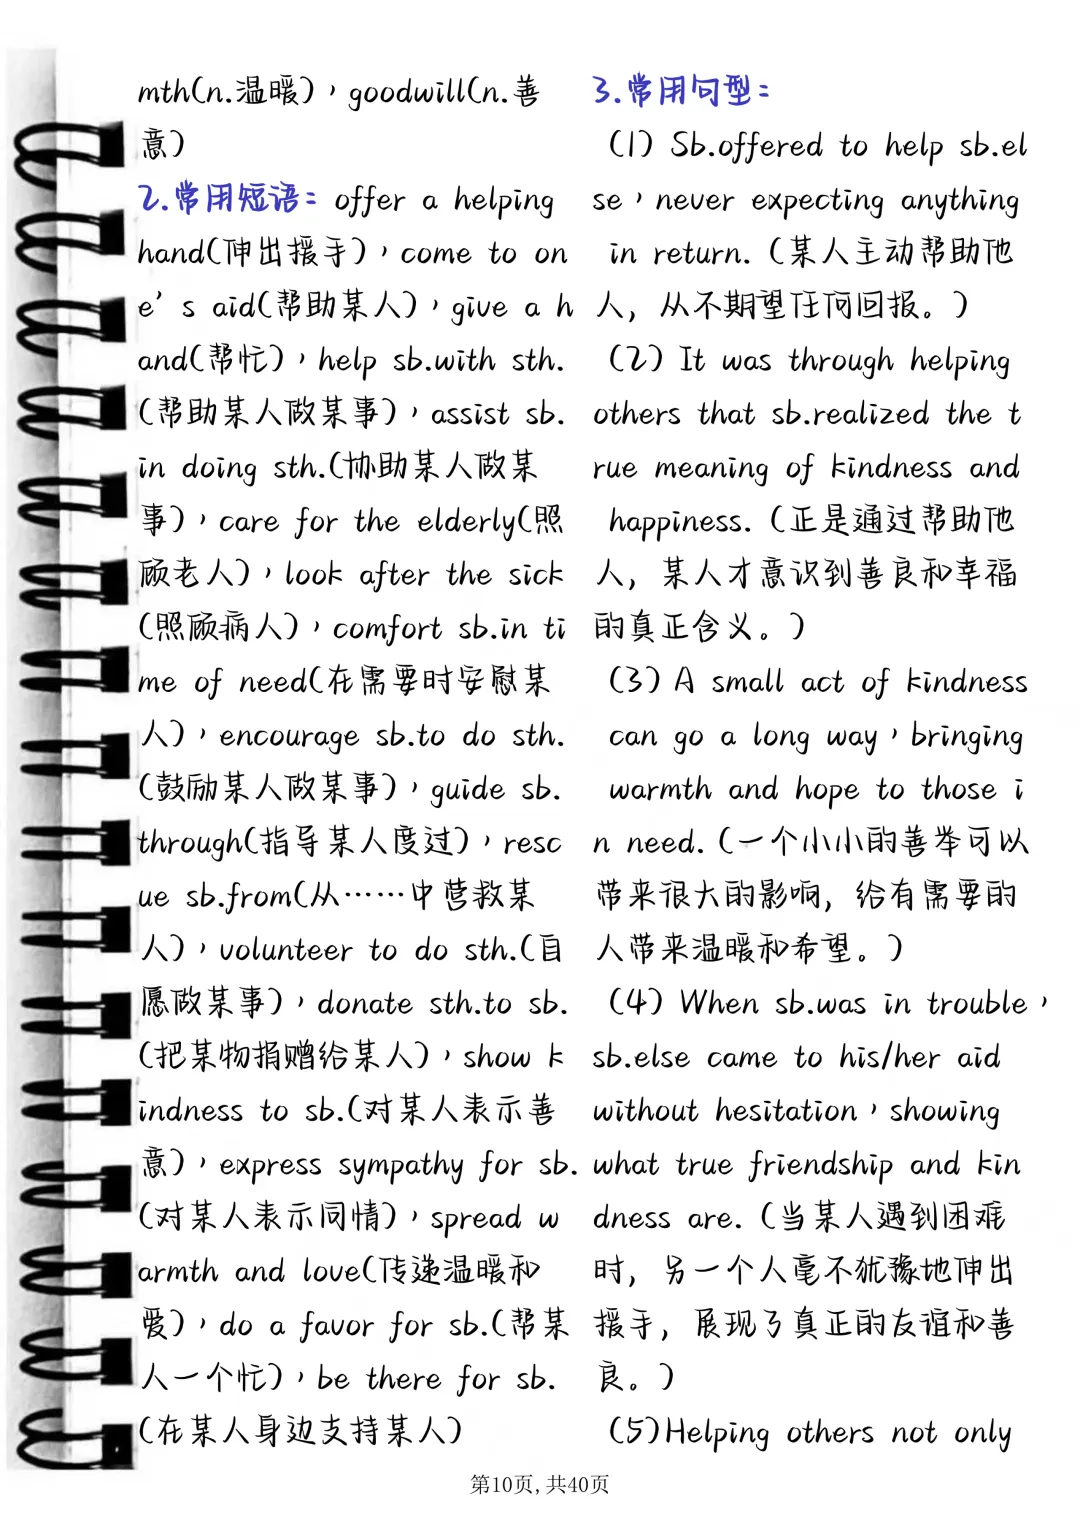 mth(n.温暖)，goodwill(n.善
意)
2.常用短语：offer a helping
hand(伸出援手)，come to on
e’s aid(帮助某人)，give a h
and(帮忙)，help sb.with sth.
(帮助某人做某事)，assist sb.
in doing sth.(协助某人做某
事)，care for the elderly(照
顾老人)，look after the sick
(照顾病人)，comfort sb.in ti
me of need(在需要时安慰某
人)，encourage sb.to do sth.
(鼓励某人做某事)，guide sb.
through(指导某人度过)，resc
ue sb.from(从……中营救某
人)，volunteer to do sth.(自
愿做某事)，donate sth.to sb.
(把某物捐赠给某人)，show k
indness to sb.(对某人表示善
意)，express sympathy for sb.
(对某人表示同情)，spread w
armth and love(传递温暖和
爱)，do a favor for sb.(帮某
人一个忙)，be there for sb.
(在某人身边支持某人)
3.常用句型：
(1) Sb.offered to help sb.el
se，never expecting anything
in return.（某人主动帮助他
人，从不期望任何回报。）
(2) It was through helping
others that sb.realized the t
rue meaning of kindness and
happiness.（正是通过帮助他
人，某人才意识到善良和幸福
的真正含义。）
(3) A small act of kindness
can go a long way，bringing
warmth and hope to those i
n need.（一个小小的善举可以
带来很大的影响，给有需要的
人带来温暖和希望。）
(4) When sb.was in trouble，
sb.else came to his/her aid
without hesitation，showing
what true friendship and kin
dness are.（当某人遇到困难
时，另一个人毫不犹豫地伸出
援手，展现了真正的友谊和善
良。）
(5)Helping others not only
第10页, 共40页